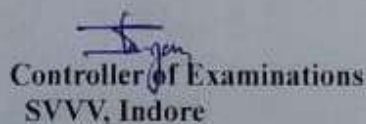 Controller of Examinations
SVVV, Indore